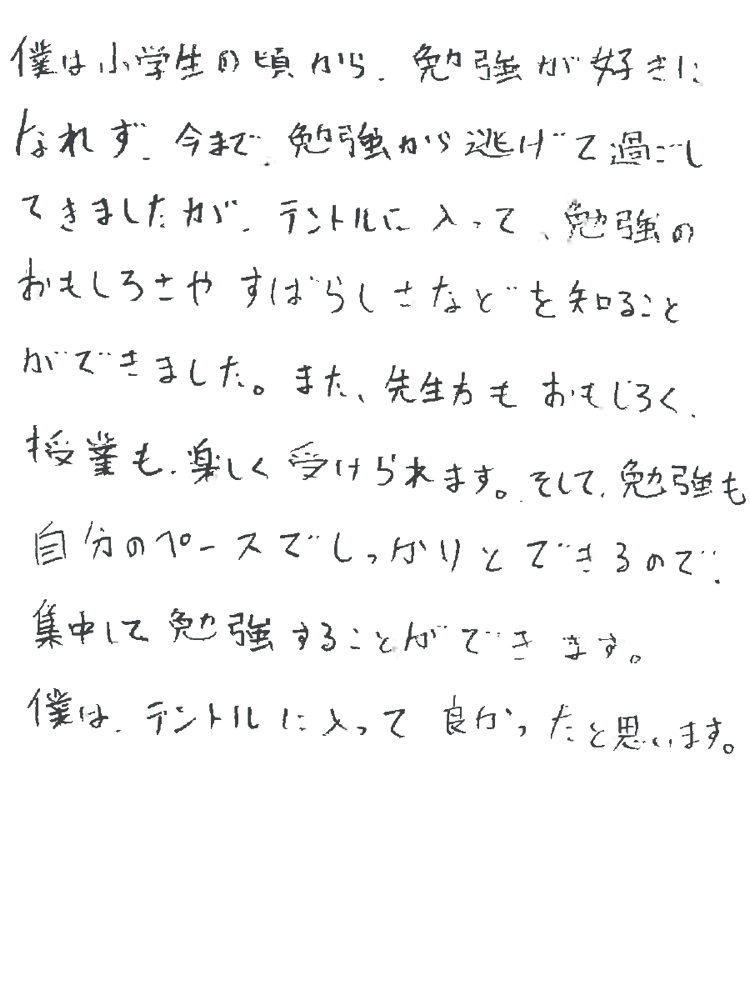 僕は小学生の頃から、勉強が好きに
なれず、今まで、勉強から逃げて過ごし
てきましたが、テントルに入って、勉強の
おもしろさやすばらしさなどを知ること
ができました。また、先生方もおもしろく、
授業も、楽しく受けられます。そして、勉強も
自分のペースでしっかりとできるので、
集中して勉強することができます。
僕は、テントルに入って良かったと思います。